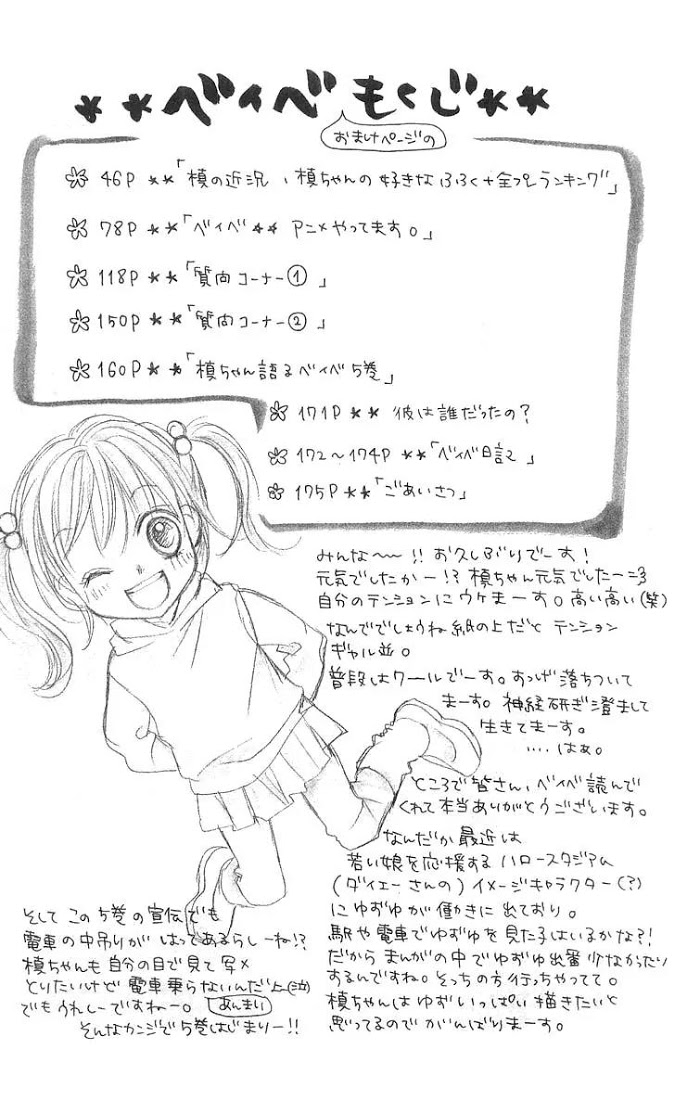 **ベイベもくじ**
おまけページの
46P **「槙の近況、槙ちゃんの好きなふく+全プレランキング」
78P **「ベイベ** アニメやってます。」
118P **「質問コーナー①」
150P **「質問コーナー②」
160P **「槙ちゃん語るベイベ5巻」
171P ** 彼は誰だったの?
172〜174P **「ベイベ日記」
175P **「ごあいさつ」
みんな〜〜!! お久しぶりでーす!
元気でしたかー!? 槙ちゃん元気でしたー=3
自分のテンションにウケまーす。高い高い(笑)
なんででしょうね紙の上だと テンション
ギャル並。
普段はクールでーす。おっげ落ちついて
まーす。神経研ぎ澄まして
生きてまーす。
‥‥はぁ。
ところで皆さん、ベイベ読んで
くれて本当ありがとうございます。
なんだか最近は
若い娘を応援する ハロースタジアム
(ダイエーさんの)イメージキャラクター(?)
にゆずゆが働きに出ており。
駅や電車でゆずゆを見た子はいるかな?!
だからまんがの中でゆずゆ出番少なかったり
するんですね。そっちの方行っちゃってて。
槙ちゃんはゆずいっぱい描きたいと
思ってるのでがんばりまーす。
そしてこの5巻の宣伝でも
電車の中吊りが はってあるらしーね!?
槙ちゃんも自分の目で見て写メ
とりたいけど 電車乗らないんだよ(泣)
あんまり
でもうれしーですねー。
そんなカンジで5巻はじまりー!!